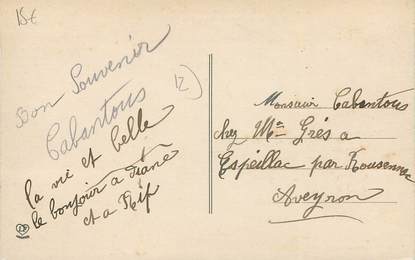 15€
Bon Souvenir
Cabantous
la vie et belle
le bonjour a
et a
12)
Monsieur Cabantous
chez Mr Grés a
Espeillac par
Aveyron